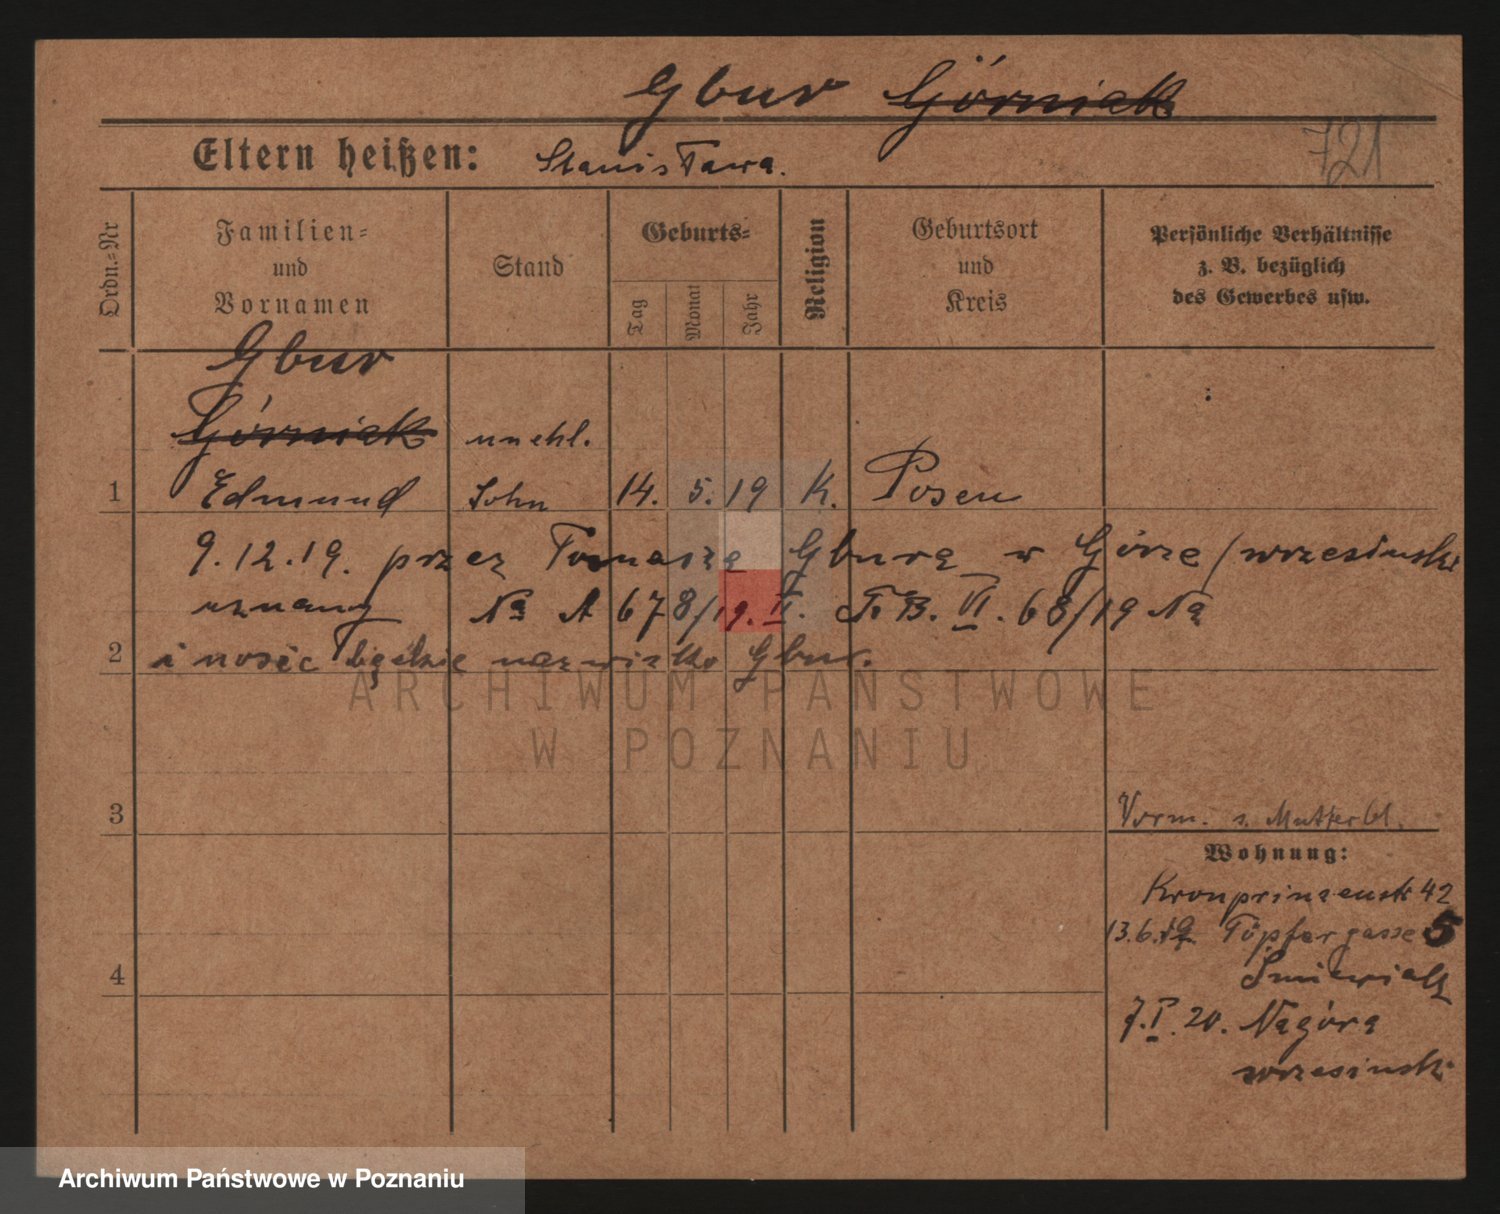 Gbur Górniak
721
Eltern heißen: Stanisława.
Ordn.-Nr
Familien-
und
Vornamen
Stand
Geburts-
Tag
Monat
Jahr
Religion
Geburtsort
und
Kreis
Persönliche Verhältnisse
z. B. bezüglich
des Gewerbes usw.
Gbur
Górniak unehl.
1 Edmund Sohn 14. 5. 19 K. Posen
9.12.19. przez Tomasza Gbura w Górze / wrzesinski
uznany Na A 678/19. II. Fr B. VI. 68/19 Na
2 i nosić będzie nazwisko Gbur.
ARCHIWUM PAŃSTWOWE
W POZNANIU
3
Vorm. s. Mutterbl.
Wohnung:
Kronprinzenstr 42
13.6.19 Töpfergasse 5
4
7.I.20. Nagóra
wrzesinski
Archiwum Państwowe w Poznaniu